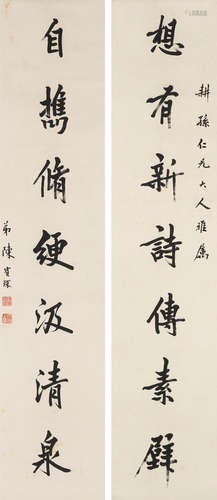 耕孫仁兄大人雅屬
想有新詩傳素壁
自攜脩綆汲清泉
弟陳寶琛